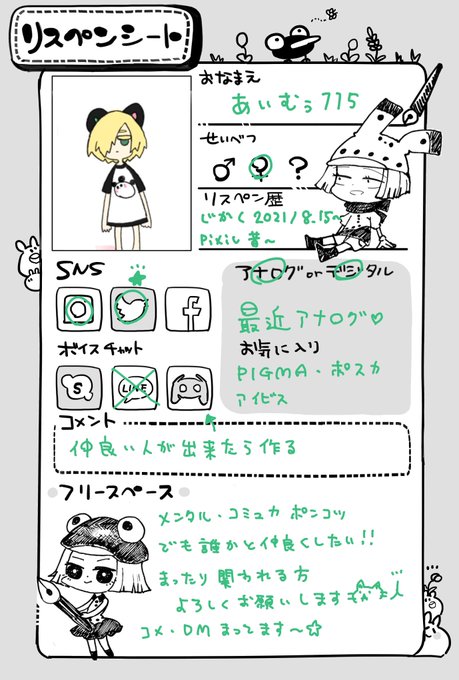 リスペンシート
おなまえ
あいむぅ715
せいべつ
♂ ♀ ?
リスペン歴
じかく 2021/8.15~
Pixiv 昔~
SNS
アナログ or デジタル
最近アナログ♡
お気に入り
PIGMA・ポスカ
アイビス
ボイスチャット
S LINE
コメント
仲良い人が出来たら作る
フリースペース
メンタル・コミュカ ポンコツ
でも誰かと仲良くしたい!!
まったり関われる方
よろしくお願いします
コメ・DM まってます～☆